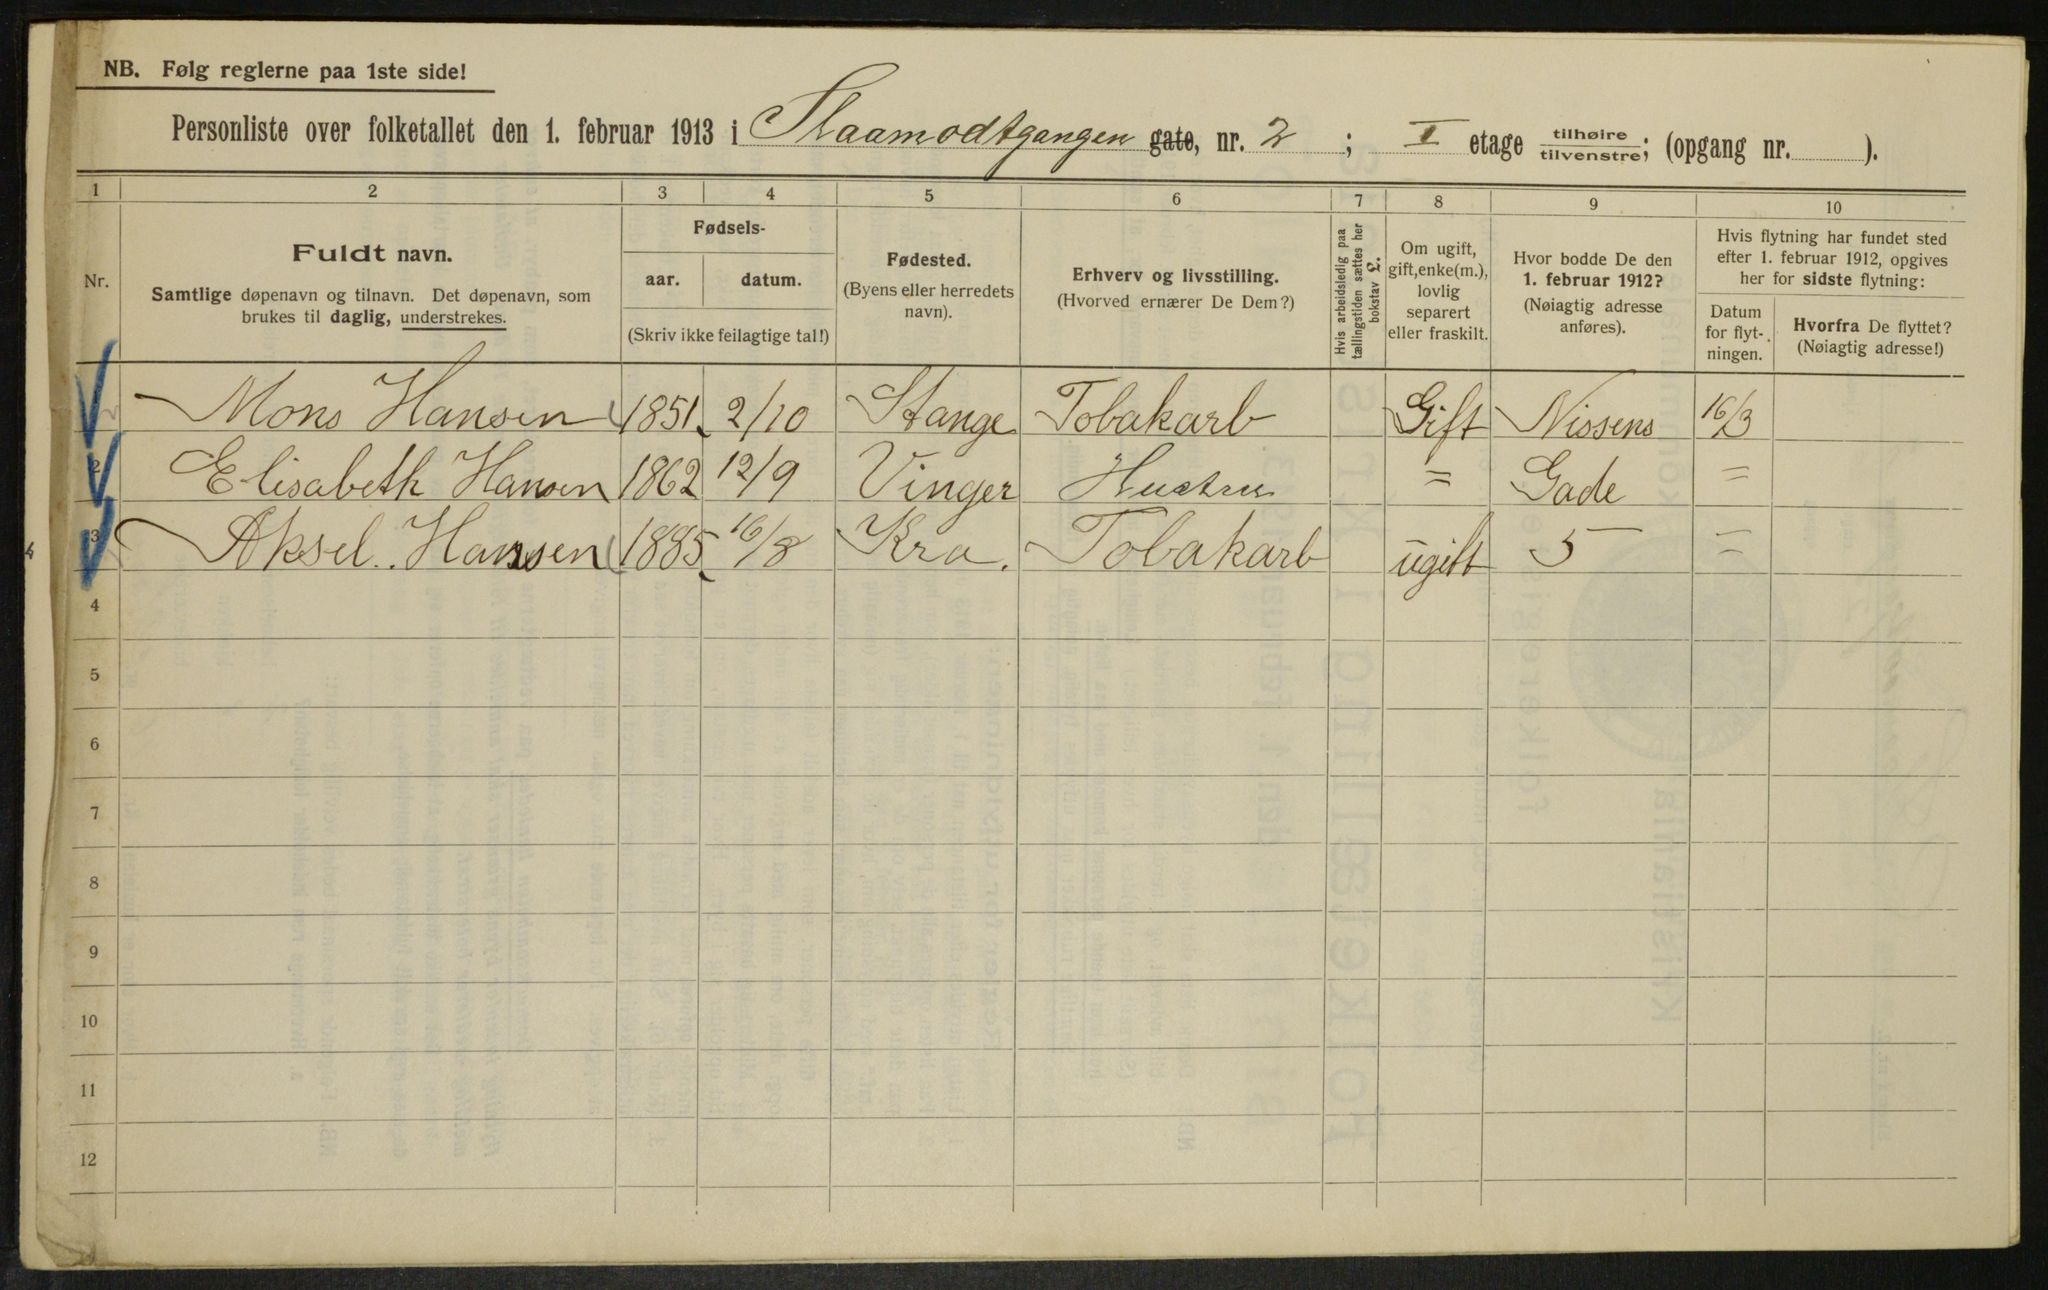 NB. Følg reglerne paa 1ste side!
Personliste over folketallet den 1. februar 1913 i Slaamodtgangen gate, nr. 2 ; I etage tilhøire/tilvenstre; (opgang nr. ).
1 2 3 4 5 6 7 8 9 10
Nr.
Fuldt navn.
Samtlige døpenavn og tilnavn. Det døpenavn, som
brukes til daglig, understrekes.
Fødsels-
aar. datum.
(Skriv ikke feilagtige tal!)
Fødested.
(Byens eller herredets
navn).
Erhverv og livsstilling.
(Hvorved ernærer De Dem?)
Hvis arbeidsledig paa
tællingstiden sættes her
bokstav L.
Om ugift,
gift, enke(m.),
lovlig
separert
eller fraskilt.
Hvor bodde De den
1. februar 1912?
(Nøiagtig adresse
anføres).
Hvis flytning har fundet sted
efter 1. februar 1912, opgives
her for sidste flytning:
Datum
for flyt-
ningen.
Hvorfra De flyttet?
(Nøiagtig adresse!)
Mons Hansen 1851 2/10 Stange Tobakarb Gift Nissens 16/3
2 Elisabeth Hansen 1862 12/9 Vinger Hustru = Gade =
3 Aksel. Hansen 1885 16/8 Kra. Tobakarb ugift 5 =
4
5
6
7
8
9
10
11
12